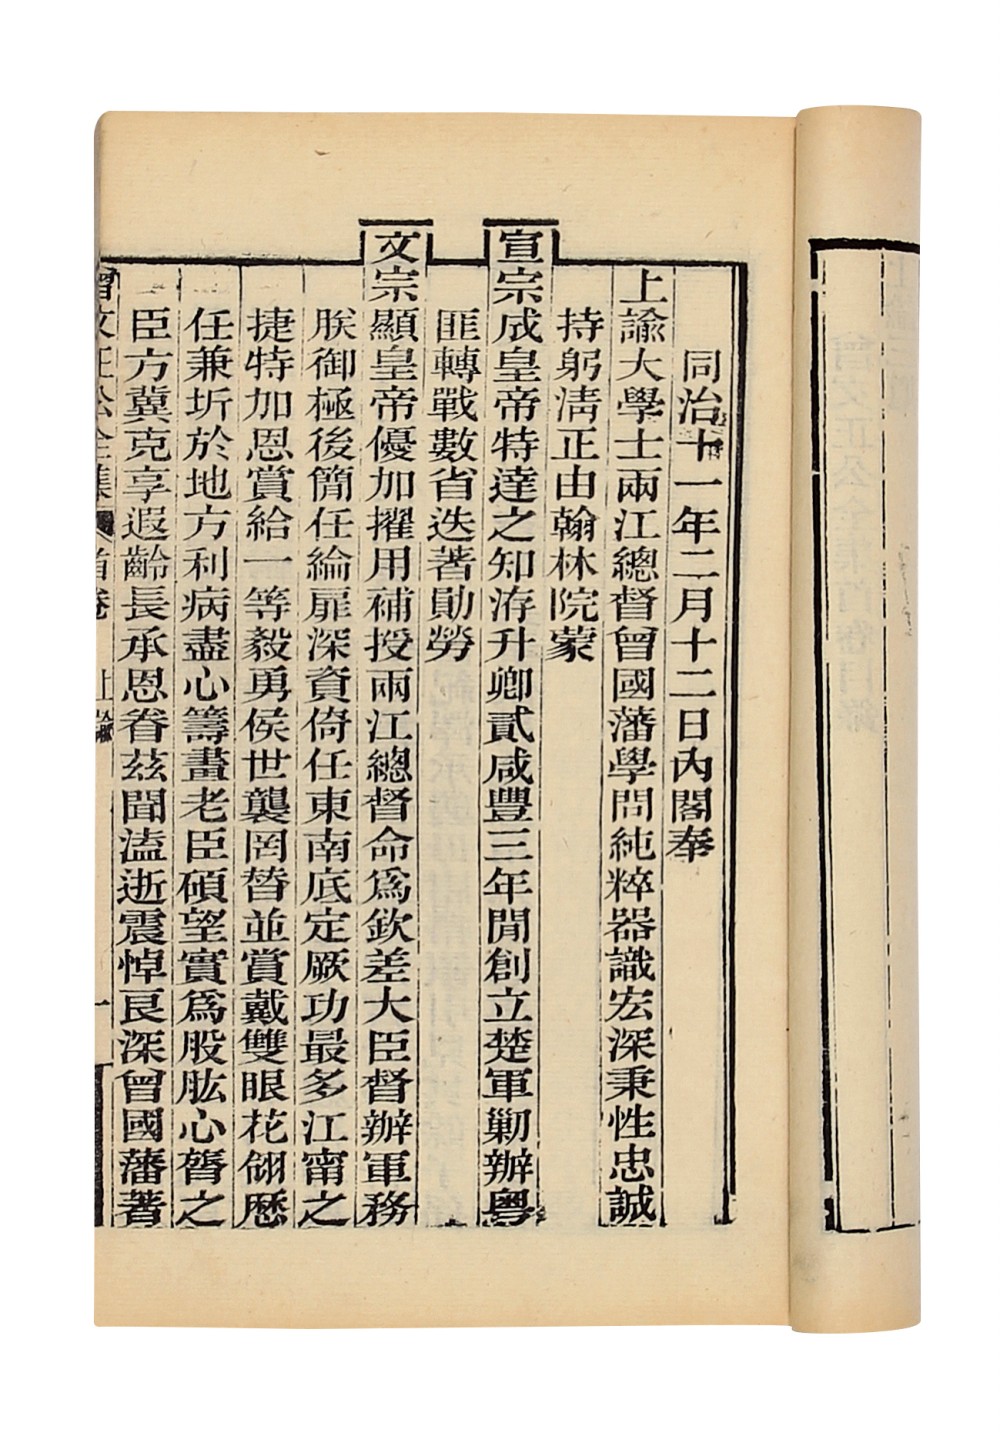 同治十一年二月十二日內閣奉
上諭大學士兩江總督曾國藩學問純粹器識宏深秉性忠誠
持躬淸正由翰林院蒙
宣宗成皇帝特達之知洊升卿貳咸豐三年閒創立楚軍剿辦粵
匪轉戰數省迭著勛勞
文宗顯皇帝優加擢用補授兩江總督命爲欽差大臣督辦軍務
朕御極後簡任綸扉深資倚任東南底定厥功最多江甯之
捷特加恩賞給一等毅勇侯世襲罔替並賞戴雙眼花翎歷
任兼圻於地方利病盡心籌畫老臣碩望實爲股肱心膂之
臣方冀克享遐齡長承恩眷茲聞溘逝震悼良深曾國藩著
曾文正公全集 首卷 上諭 一